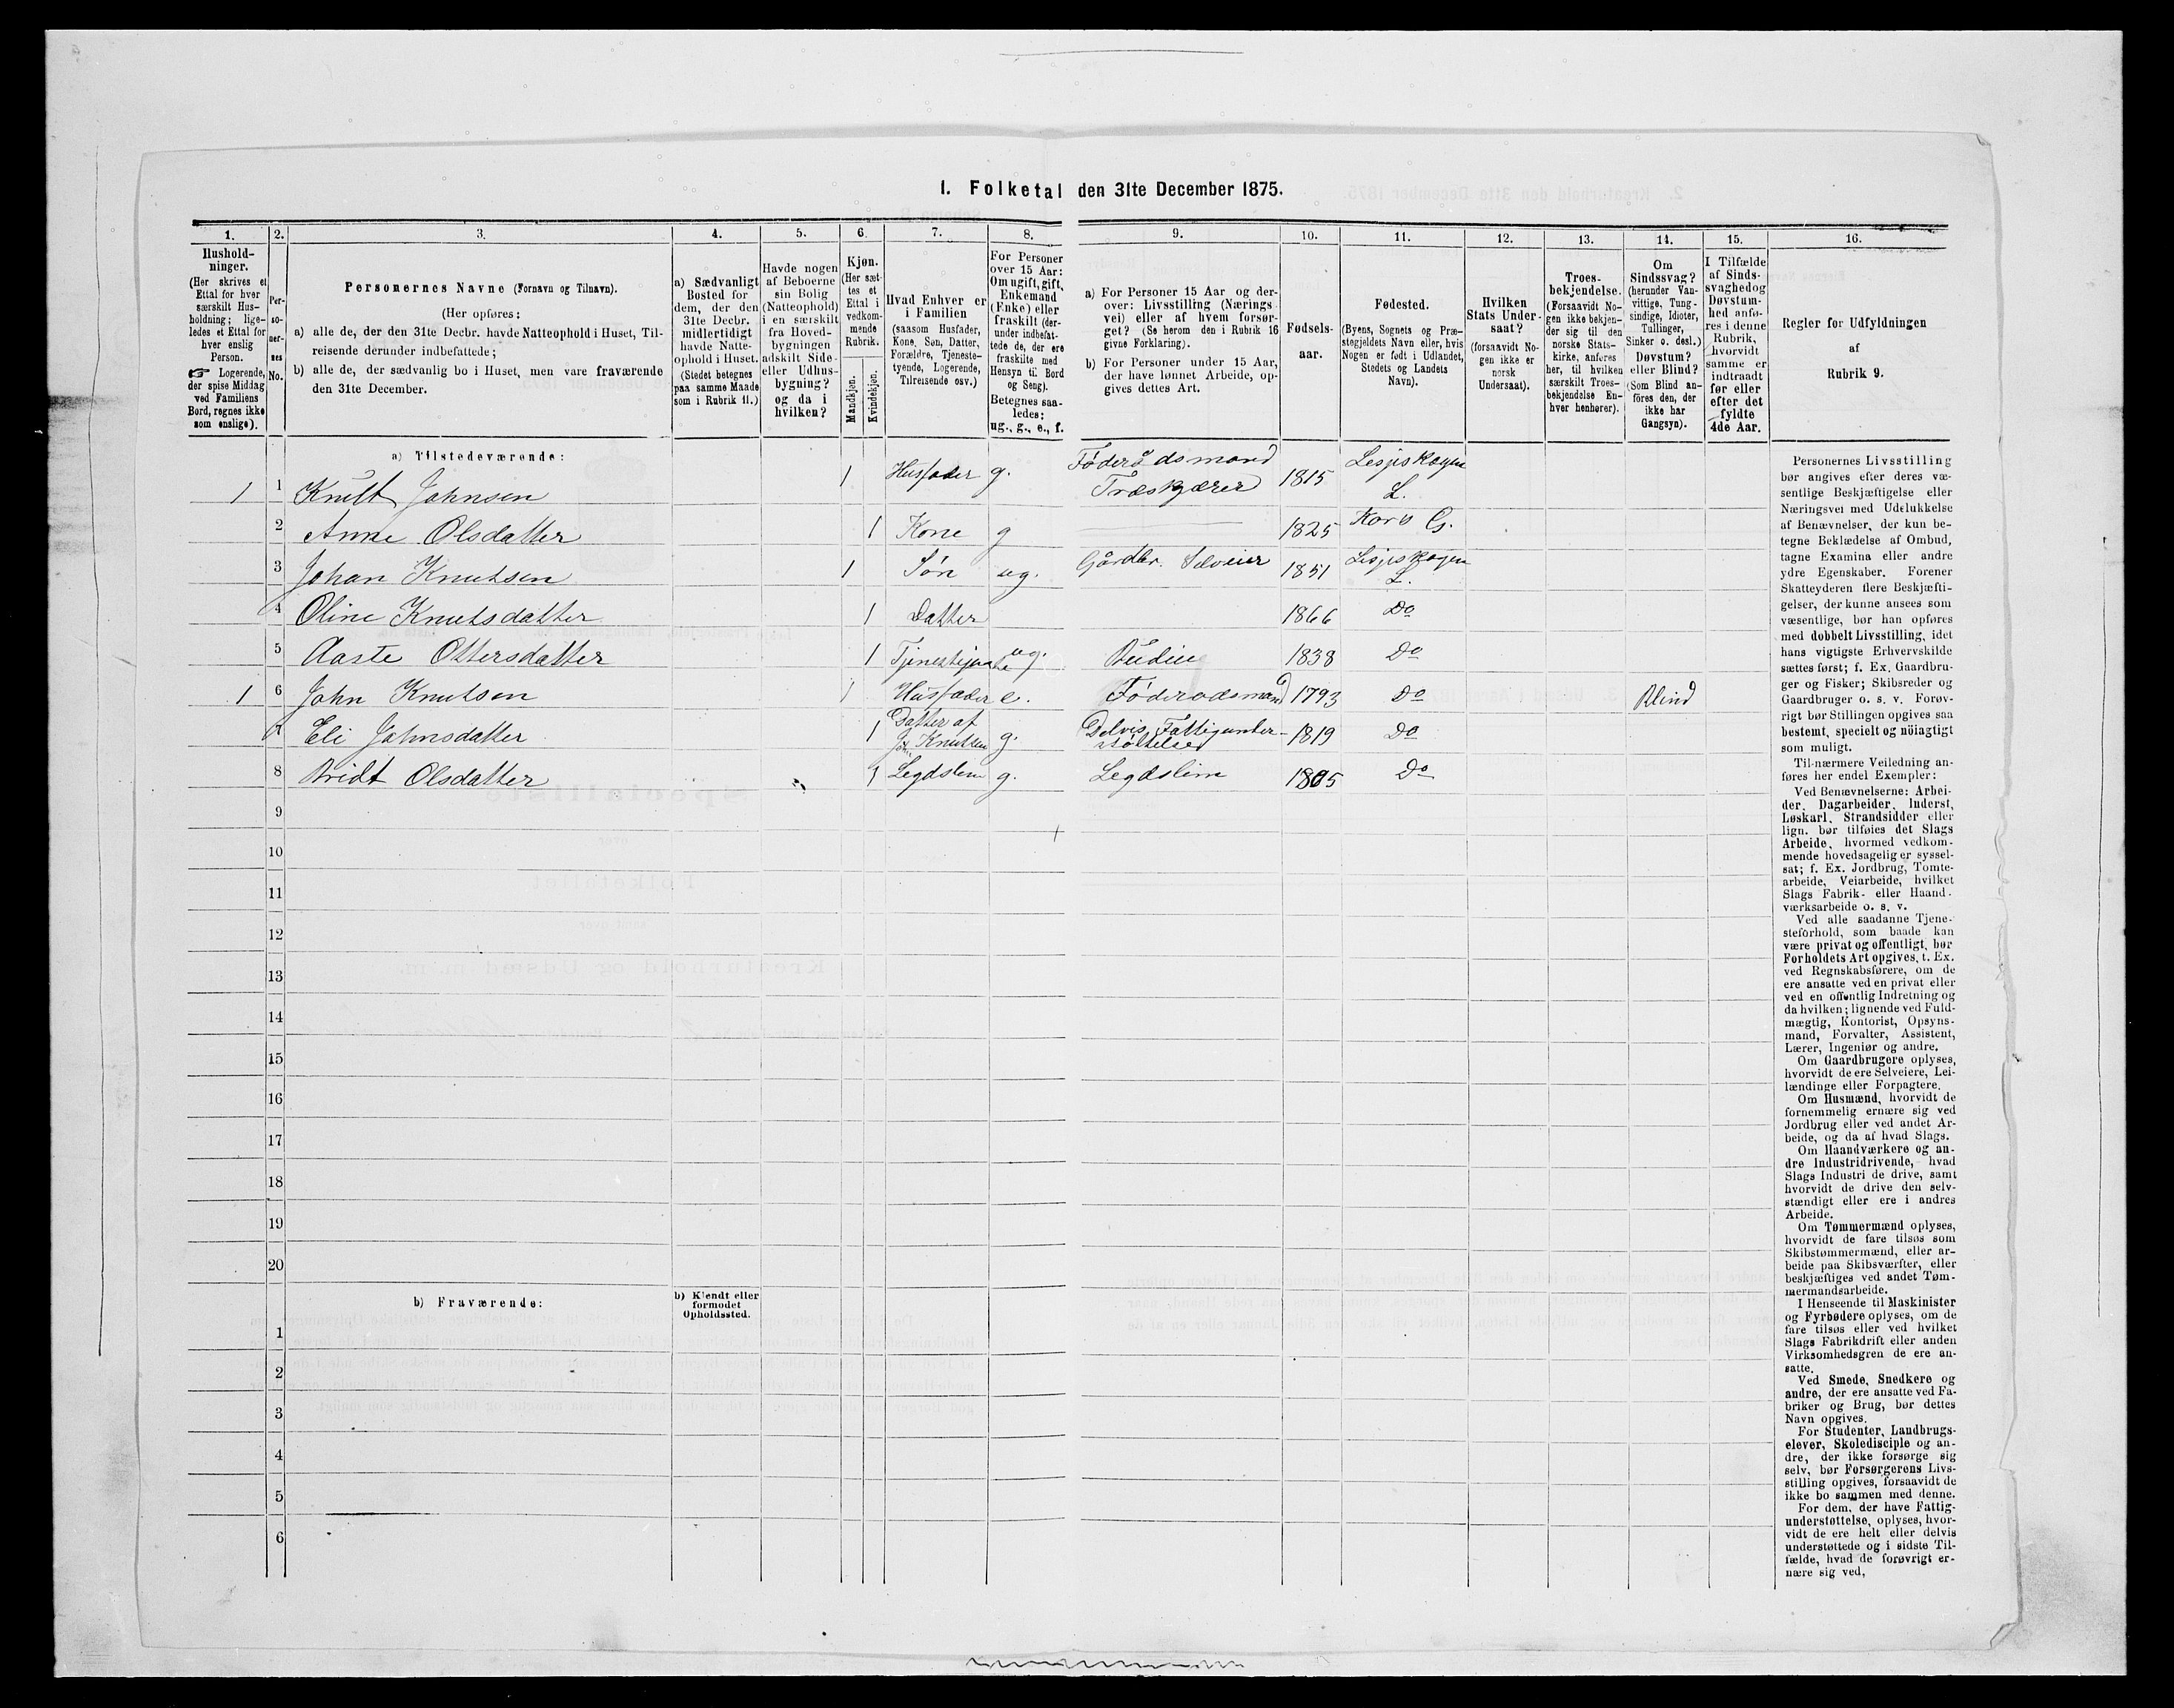 1. Folketal den 31te December 1875.
1. 2. 3. 4. 5. 6. 7. 8. 9. 10. 11. 12. 13. 14. 15. 16.
Hushold-
ninger.
(Her skrives et
Ettal for hver
særskilt Hus-
holdning; lige-
ledes et Ettal for
hver enslig
Person.
☞ Logerende,
der spise Middag
ved Familiens
Bord, regnes ikke
som enslige).
Per-
so-
ner-
nes
No.
Personernes Navne (Fornavn og Tilnavn).
(Her opføres:
a) alle de, der den 31te Decbr. havde Natteophold i Huset, Til-
reisende derunder indbefattede;
b) alle de, der sædvanlig bo i Huset, men vare fraværende
den 31te December.
a) Sædvanligt
Bosted for
dem, der den
31te Decbr.
midlertidigt
havde Natte-
ophold i Huset.
(Stedet betegnes
paa samme Maade
som i Rubrik 11.)
Havde nogen
af Beboerne
sin Bolig
(Natteophold)
i en særskilt
fra Hoved-
bygningen
adskilt Side-
eller Udhus-
bygning?
og da i
hvilken?
Kjøn.
(Her sæt-
tes et
Ettal i
vedkom-
mende
Rubrik.
Mandkjøn.
Kvindekjøn.
Hvad Enhver er
i Familien
(saasom Husfader,
Kone, Søn, Datter,
Forældre, Tjeneste-
tyende, Logerende,
Tilreisende osv.)
For Personer
over 15 Aar:
Om ugift, gift,
Enkemand
(Enke) eller
fraskilt (der-
under indbefat-
tede de, der ere
fraskilte med
Hensyn til Bord
og Seng).
Betegnes saa-
ledes:
ug., g., e., f.
a) For Personer 15 Aar og der-
over: Livsstilling (Nærings-
vei) eller af hvem forsør-
get? (Se herom den i Rubrik 16
givne Forklaring).
b) For Personer under 15 Aar,
der have lønnet Arbeide, op-
gives dettes Art.
Fødsels-
aar.
Fødested.
(Byens, Sognets og Præ-
stegjeldets Navn eller, hvis
Nogen er født i Udlandet,
Stedets og Landets
Navn).
Hvilken
Stats Under-
saat?
(forsaavidt No-
gen ikke er
norsk
Undersaat).
Troes-
bekjendelse.
(Forsaavidt No-
gen ikke bekjen-
der sig til den
norske Stats-
kirke, anføres
her, til hvilken
særskilt Troes-
bekjendelse En-
hver henhører).
Om
Sindssvag?
(herunder Van-
vittige, Tung-
sindige, Idioter,
Tullinger,
Sinker o. desl.)
Døvstum?
eller Blind?
(Som Blind an-
føres den, der
ikke har
Gangsyn).
I Tilfælde
af Sinds-
svaghed og
Døvstum-
hed anfø-
res i denne
Rubrik,
hvorvidt
samme er
indtraadt
før eller
efter det
fyldte
4de Aar.
Regler for Udfyldningen
af
Rubrik 9.
a) Tilstedeværende:
1 1 Knut Johnsen 1 Husfader g. Föderådsmand Træskjærer 1815 Lesjeskogen L.
2 Anne Olsdatter 1 Kone g 1825 Kors G.
3 Johan Knutsen 1 Sön ug. Gårdbr. Selveier 1851 Lesjeskogen L.
4 Oline Knutsdatter 1 Datter 1866 Do
5 Aaste Ottersdatter 1 Tjenestepige ug. Budeie 1838 Do
1 6 John Knutsen 1 Husfader e. Föderadsmand 1793 Do Blind
7 Eli Johnsdatter 1 Datter af Joh. Knutsen g. Delvis Fattigunderstöttelse 1819 Do
8 Bridt Olsdatter 1 Legdslem g. Legdslem 1805 Do
9
10
11
12
13
14
15
16
17
18
19
20
b) Fraværende:
b) Kjendt eller
formodet
Opholdssted.
1
2
3
4
5
6
Personernes Livsstilling
bør angives efter deres væ-
sentlige Beskjæftigelse eller
Næringsvei med Udelukkelse
af Benævnelser, der kun be-
tegne Beklædelse af Ombud,
tagne Examina eller andre
ydre Egenskaber. Forener
Skatteyderen flere Beskjæfti-
gelser, der kunne ansees som
væsentlige, bør han opføres
med dobbelt Livsstilling, idet
hans vigtigste Erhvervskilde
sættes først; f. Ex. Gaardbru-
ger og Fisker; Skibsreder og
Gaardbruger o. s. v. Forøv-
rigt bør Stillingen opgives saa
bestemt, specielt og nöiagtigt
som muligt.
Til nærmere Veiledning an-
føres her endel Exempler:
Ved Benævnelserne: Arbei-
der, Dagarbeider, Inderst,
Løskarl, Strandsidder eller
lign. bør tilføies det Slags
Arbeide, hvormed vedkom-
mende hovedsagelig er syssel-
sat; f. Ex. Jordbrug, Tomte-
arbeide, Veiarbeide, hvilket
Slags Fabrik- eller Haand-
værksarbeide o. s. v.
Ved alle saadanne Tjene-
steforhold, som baade kan
være privat og offentligt, bør
Forholdets Art opgives, t. Ex.
ved Regnskabsførere, om de
ere ansatte ved en privat eller
ved en offentlig Indretning og
da hvilken; lignende ved Fuld-
mægtig, Kontorist, Opsyns-
mand, Forvalter, Assistent,
Lærer, Ingeniør og andre.
Om Gaardbrugere oplyses,
hvorvidt de ere Selveiere, Lei-
lændinge eller Forpagtere.
Om Husmænd, hvorvidt de
fornemmelig ernære sig ved
Jordbrug eller ved andet Ar-
beide, og da af hvad Slags.
Om Haandværkere og an-
dre Industridrivende, hvad
Slags Industri de drive, samt
hvorvidt de drive den selv-
stændigt eller ere i andres
Arbeide.
Om Tømmermænd oplyses,
hvorvidt de fare tilsøs som
Skibstømmermænd, eller ar-
beide paa Skibsværfter, eller
beskjæftiges ved andet Tøm-
mermandsarbeide.
I Henseende til Maskinister
og Fyrbødere oplyses, om de
fare tilsøs eller ved hvilket
Slags Fabrikdrift eller anden
Virksomhedsgren de ere an-
satte.
Ved Smede, Snedkere og
andre, der ere ansatte ved Fa-
briker og Brug, bør dettes
Navn opgives.
For Studenter, Landbrugs-
elever, Skoledisciple og an-
dre, der ikke forsørge sig
selv, bør Forsørgerens Livs-
stilling opgives, forsaavidt de
ikke bo sammen med denne.
For dem, der have Fattig-
understøttelse, oplyses, hvor-
vidt de ere helt eller delvis
understøttede og i sidste Til-
fælde, hvad de forøvrigt er-
nære sig ved,